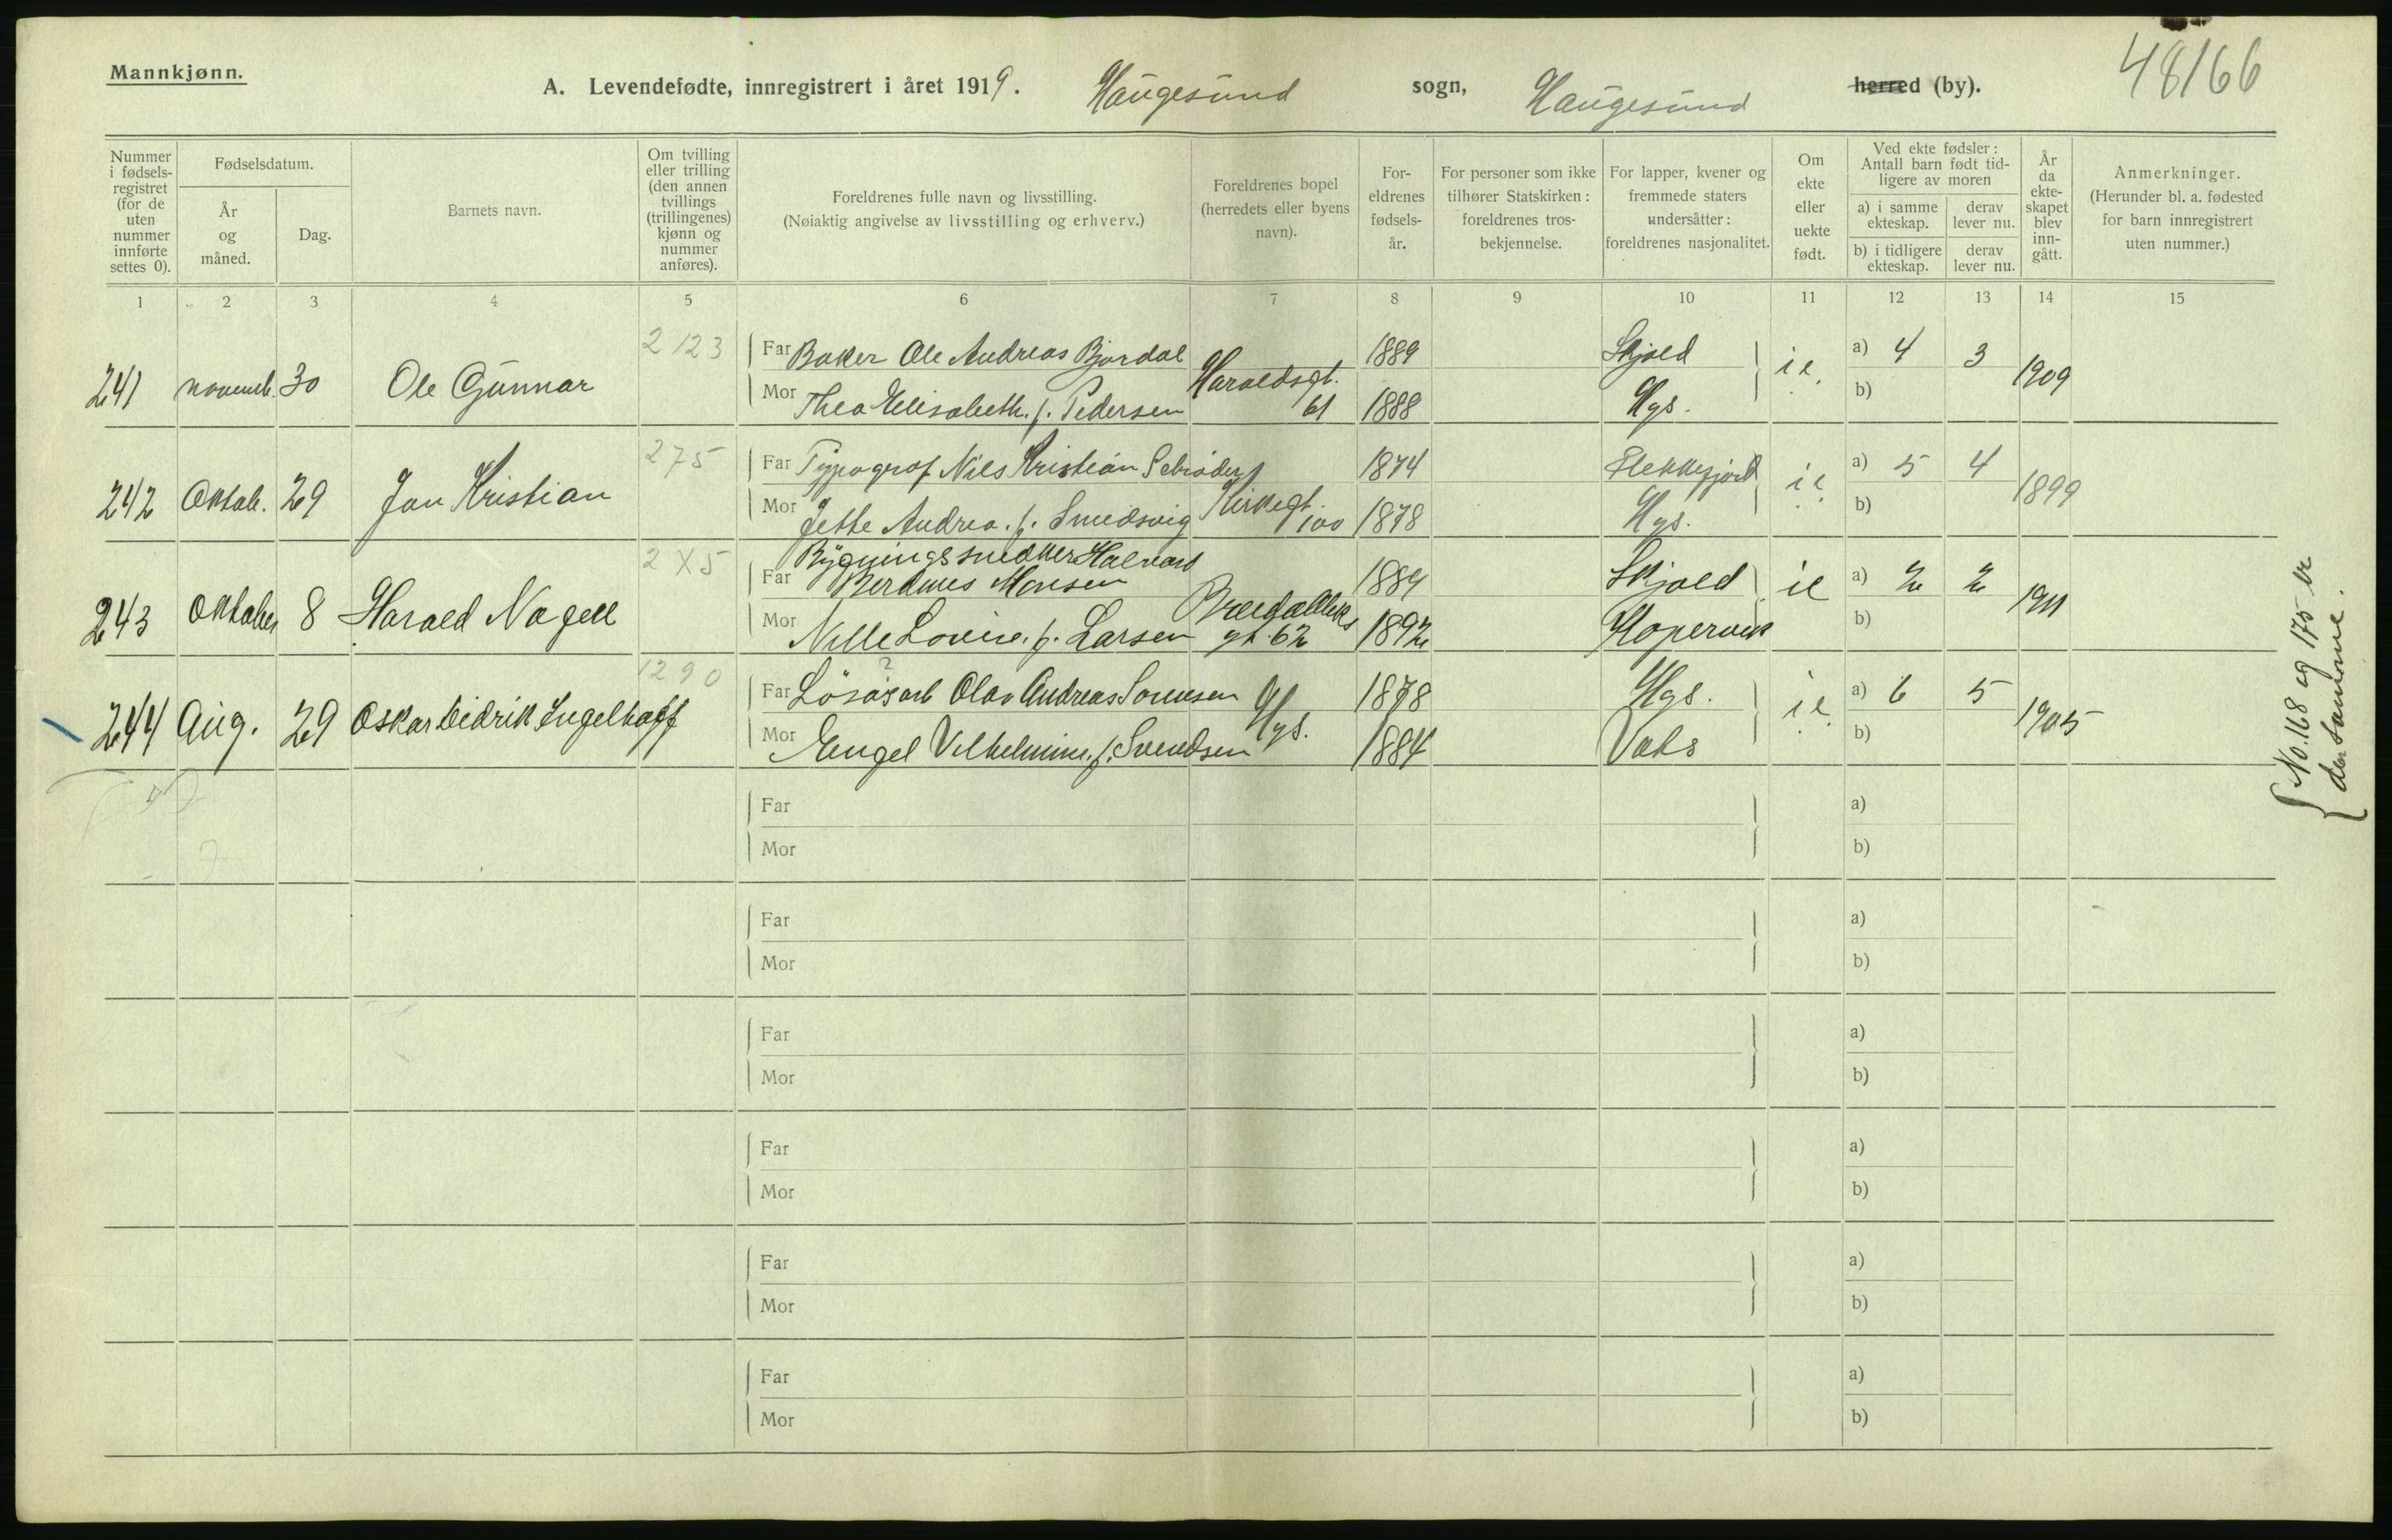 Mannkjønn.
48166
A. Levendefødte, innregistrert i året 1919. Haugesund sogn, Haugesund herred (by).
Nummer i fødsels-registret (for de uten nummer innførte settes 0).
Fødselsdatum.
År og måned.
Dag.
Barnets navn.
Om tvilling eller trilling (den annen tvillings (trillingenes) kjønn og nummer anføres).
Foreldrenes fulle navn og livsstilling.
(Nøiaktig angivelse av livsstilling og erhverv.)
Foreldrenes bopel (herredets eller byens navn).
For-eldrenes fødsels-år.
For personer som ikke tilhører Statskirken: foreldrenes tros-bekjennelse.
For lapper, kvener og fremmede staters undersåtter: foreldrenes nasjonalitet.
Om ekte eller uekte født.
Ved ekte fødsler: Antall barn født tid-ligere av moren
a) i samme ekteskap.
derav lever nu.
b) i tidligere ekteskap.
derav lever nu.
År da ekte-skapet blev inn-gått.
Anmerkninger.
(Herunder bl. a. fødested for barn innregistrert uten nummer.)
1 2 3 4 5 6 7 8 9 10 11 12 13 14 15
2 123
Far Baker Ole Andreas Bjordal 1889 Skjold a) 4 3
241 novemb. 30 Ole Gunnar Haraldsgt. 61 i e. 1909
Mor Thea Elisabeth. f. Pedersen 1888 Hgs. b)
275
Far Typograf Nils Kristian Schrøder 1874 Flekkefjord a) 5 4
242 Oktob. 29 Jan Kristian Kirkegt. 100 i e. 1899
Mor Jette Andrea. f. Smedsvig 1878 Hgs. b)
2 X 5
Far Bygningssnedker Halvard Berdines Monsen 1889 Skjold a) 2 2
243 Oktober 8 Harald Nagell gt. 62 ie 1911
Mor Nille Lovise. f. Larsen 1892 Kopervik b)
1290
Far Løsarb Olav Andreas 1878 Hgs. a) 6 5
244 Aug. 29 Oskar Didrik Ingelhoff Hgs. i e. 1905
Mor Engel Vilhelmine. f. Svendsen 1884 Vats b)
No. 168 og 175 er
den samme.
Far a)
Mor b)
Far a)
Mor b)
Far a)
Mor b)
Far a)
Mor b)
Far a)
Mor b)
Far a)
Mor b)